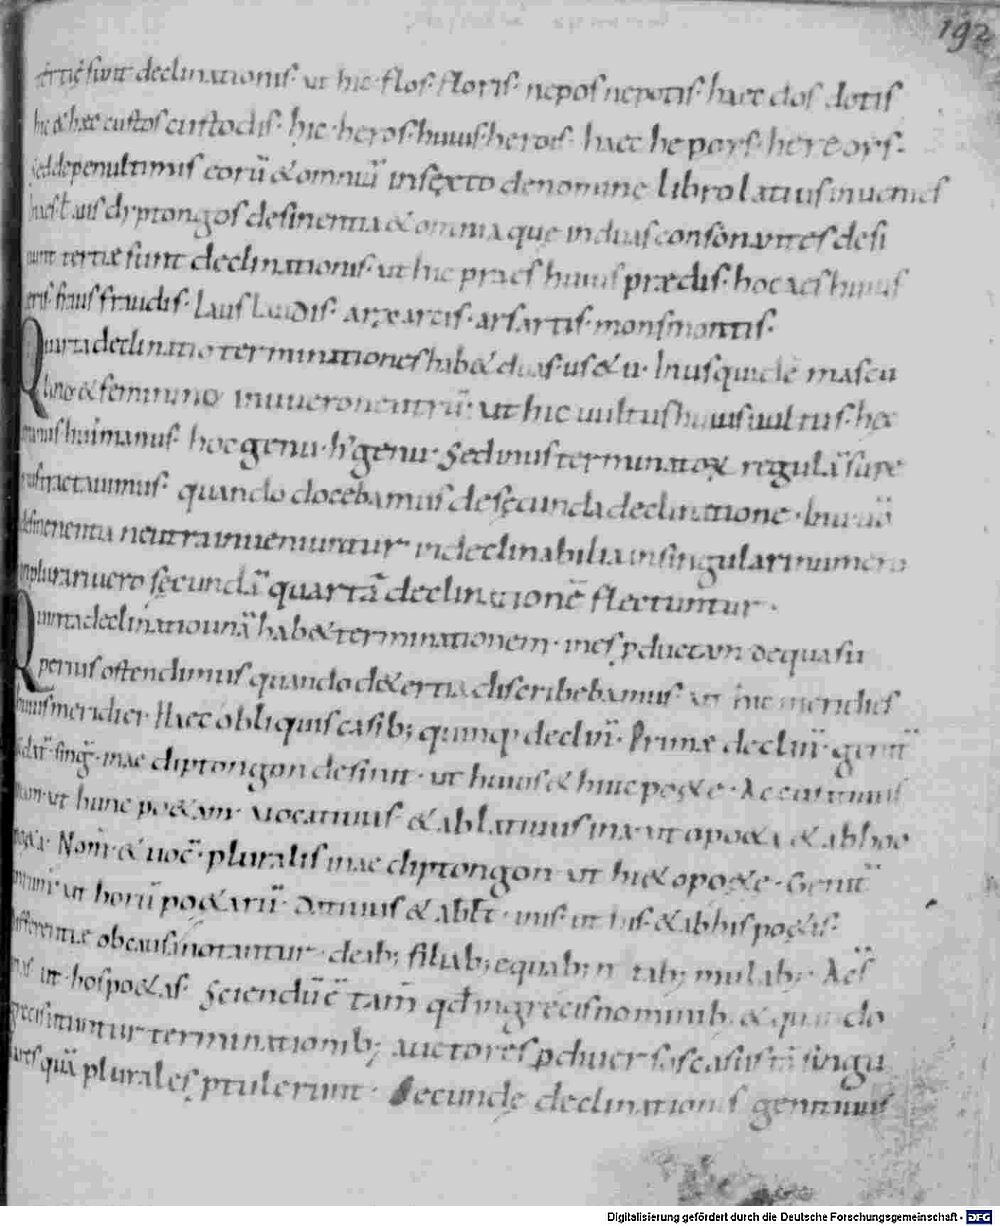 192
tertię sunt declinationis· ut hic flos· floris· nepos nepotis· haec dos dotis
hic & hæc custos custodis· hic heros· huius herois· haec
sed de penultimis eorū & omniū in sexto de nomine libro latius inuenies
diptongos desinentia & omnia que in duas consonantes desi
nunt tertiæ sunt declinationis· ut hic praes huius prædis· hoc aes huius
eris· fraus fraudis· laus laudis· arx arcis· ars artis· mons montis·
Quarta declinatio terminationes hab& duas· us & u· In us quidē mascu
lino & feminino in u uero neutrū· ut hic uultus huius uultus· hęc
manus hui manus· hoc genu· h genu· Sed in us terminatoꝝ regulā supe
rius tractauimus· quando docebamus de secunda declinatione· In u aū
desinentia neutra inueniuntur indeclinabilia in singulari numero
in plurari uero secundā quartā declinationē flectuntur·
Quinta declinatio unā hab& terminationem· in es ꝓductam de qua su
perius ostendimus quando de t&ertia discribebamus· ut hic meridies
huius meridiei· Haec obliquis casib; quinq; declin̄· Primæ declin̄· genit̄
& dat̄· singł· in ae diptongon desinit· ut huius & huic po&e· Accusatiuus
in am· ut hunc po&am· uocatiuus & ablatiuus in a· ut o po&a & ab hoc
po&a· Nom̄ & uoc̄· pluralis in ae diptongon ut hi & o po&e· Genit̄
in rum· ut horū po&arū· Datiuus & ablt̄· in is· ut his & ab his po&is·
Differentiæ ob causa notantur· deab; filiab; equab; mulab; Ac̄s
in as ut· hos po&as· Sciendū ē tam̄ qđ in grecis nominib; & quando
grecis utuntur terminationib; auctores ꝓ diuersos casus tā singu
lares quā plurales ꝓtulerunt· Secunde declinationis genitiuus
Digitalisierung gefördert durch die Deutsche Forschungsgemeinschaft - DFG